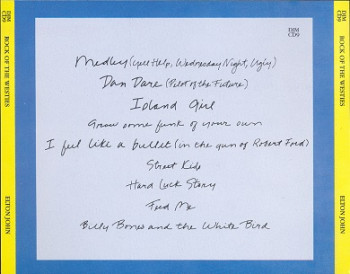 DJM
CD9
ROCK OF THE WESTIES
ELTON JOHN
DJM
CD9
Medley (Yell Help, Wednesday Night, Ugly)
Dan Dare (Pilot of the Future)
Island Girl
Grow some funk of your own
I feel like a bullet (in the gun of Robert Ford)
Street Kids
Hard Luck Story
Feed Me
Billy Bones and the White Bird
DJM
CD9
ROCK OF THE WESTIES
ELTON JOHN